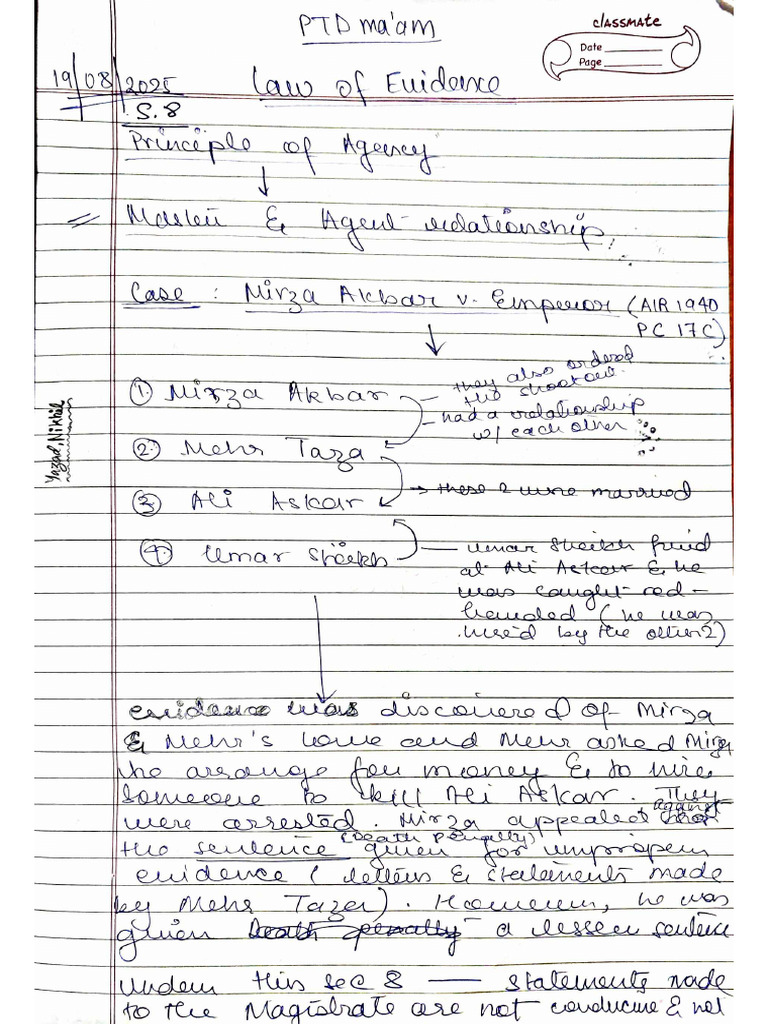 PTD ma'am
classmate
Date
Page
19/08/2025
Law of Evidence
S.8
Principle of Agency
Master & Agent relationship
Case : Mirza Akbar v. Emperor (AIR 1940
PC 17C)
① Mirza Akbar
they also ordered
the shootout.
- had a relationship
w/ each other
② Mehr Taza
→ these 2 were married
③ Ali Askar
④ Umar Sheikh
— Umar Sheikh fired
at Ali Askar & he
was caught red-
handed (he was
hired by the other 2)
Yazad, Nikhil
evidence was discovered of Mirza
& Mehr's love and Mehr asked Mirza
to arrange for money & to hire
someone to kill Ali Askar. They
were arrested. Mirza appealed against
(death penalty)
the sentence given for improper
evidence (letters & statements made
by Mehr Taza). However, he was
given death penalty a lesser sentence
Under this sec 8 — statements made
to the Magistrate are not conducive & not